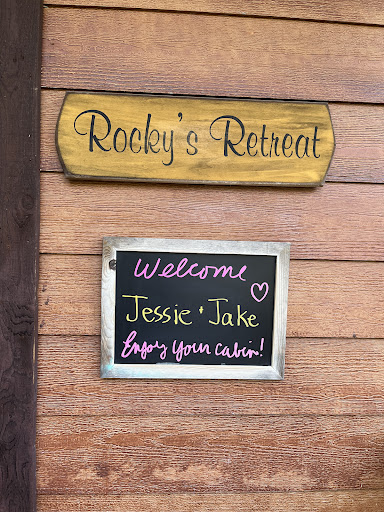 Rocky's Retreat
Welcome
Jessie + Jake
Enjoy Your cabin!